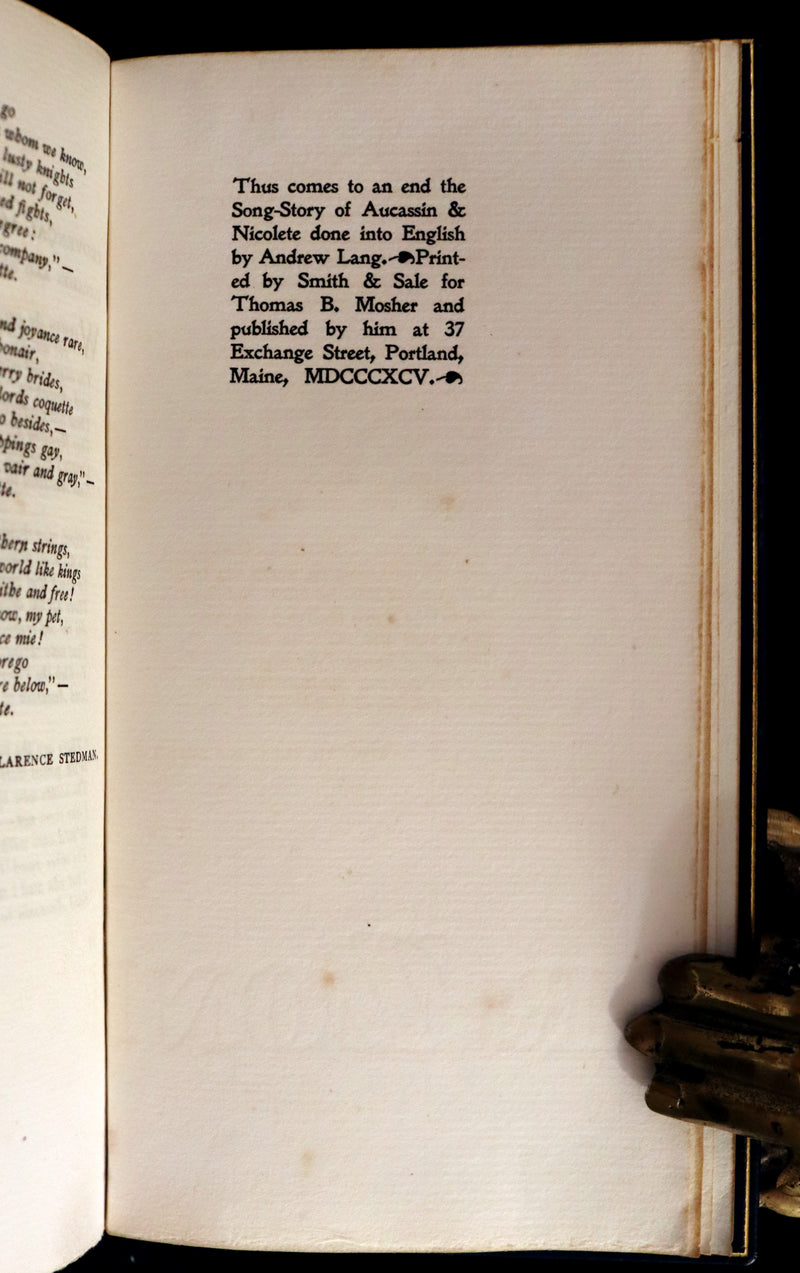 go
whom we know,
lusty knights
ill not forget,
ed fights,
gree:
company,"—
tte.
nd joyance rare,
onair,
rry brides,
lords coquette
o besides,—
ppings gay,
vair and gray,"—
te.
hern strings,
world like kings
ithe and free!
ow, my pet,
ce mie!
rego
re below,"—
te.
LARENCE STEDMAN.
Thus comes to an end the
Song-Story of Aucassin &
Nicolete done into English
by Andrew Lang. Print-
ed by Smith & Sale for
Thomas B. Mosher and
published by him at 37
Exchange Street, Portland,
Maine, MDCCCXCV.